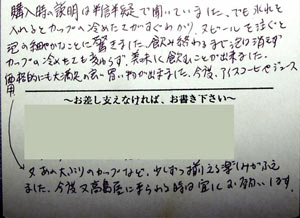 購入時の説明は半信半疑で聞いていました、でも氷を
入れるとカップの冷めたさがすぐわかり、又ビールを注ぐと
泡の細やかなことに驚きました。飲み終わるまで泡は消えず
カップの冷めたさも変らず、美味しく飲むことが出来ました。
価格的にも大満足の良い買い物が出来ました。今後、アイスコーヒーやジュース
用
〜お差し支えなければ、お書き下さい〜
又あの大ぶりのカップなど、少しずつ揃える楽しみがふえ
ました。今後又高島屋に来られる時は宜しくお願いします。